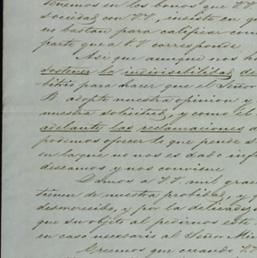 tenemos en los bonos que VV
sociedad con VV, insiste en qu
en bastan para calificar com
parte que a V corresponde.
Así que aunque nos h
sostener la indivisibilidad de
bitrio para hacer que el Señor
B. adopte nuestra opinion y
nuestra solicitud, y como el
adelante las reclamaciones d
podemos ofrecer lo que pende s
en la que no nos es dado inf
deseamos y nos conviene
Damos a VV mil grac
tienen de nuestra probidad, y q
desmerecida, y por la delicadez
que su objeto al pedirnos esta
en caso necesario al Señor Min
Creemos que cuando VV